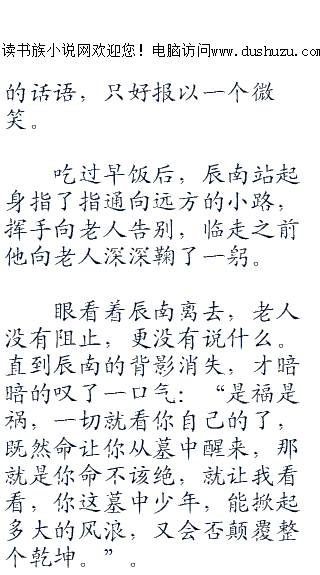 读书族小说网欢迎您！电脑访问www.dushuzu.com
的话语，只好报以一个微
笑。
吃过早饭后，辰南站起
身指了指通向远方的小路，
挥手向老人告别，临走之前
他向老人深深鞠了一躬。
眼看着辰南离去，老人
没有阻止，更没有说什么。
直到辰南的背影消失，才暗
暗的叹了一口气：“是福是
祸，一切就看你自己的了，
既然命让你从墓中醒来，那
就是你命不该绝，就让我看
看，你这墓中少年，能掀起
多大的风浪，又会否颠覆整
个乾坤。”。